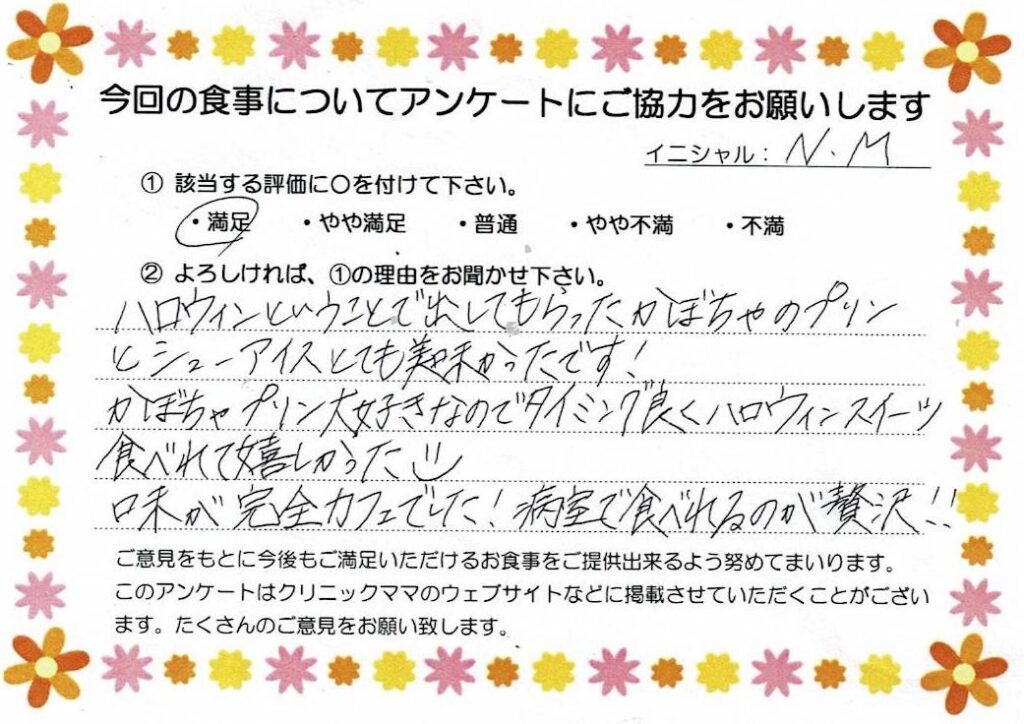 今回の食事についてアンケートにご協力をお願いします
イニシャル：N.M
① 該当する評価に〇を付けて下さい。
・満足 ・やや満足 ・普通 ・やや不満 ・不満
② よろしければ、①の理由をお聞かせ下さい。
ハロウィンということで出してもらったかぼちゃのプリン
とシューアイスとても美味かったです!
かぼちゃプリン大好きなのでタイミング良くハロウィンスイーツ
食べれて嬉しかった
味が完全カフェでした! 病室で食べれるのが贅沢!!
ご意見をもとに今後もご満足いただけるお食事をご提供出来るよう努めてまいります。
このアンケートはクリニックママのウェブサイトなどに掲載させていただくことがござい
ます。たくさんのご意見をお願い致します。